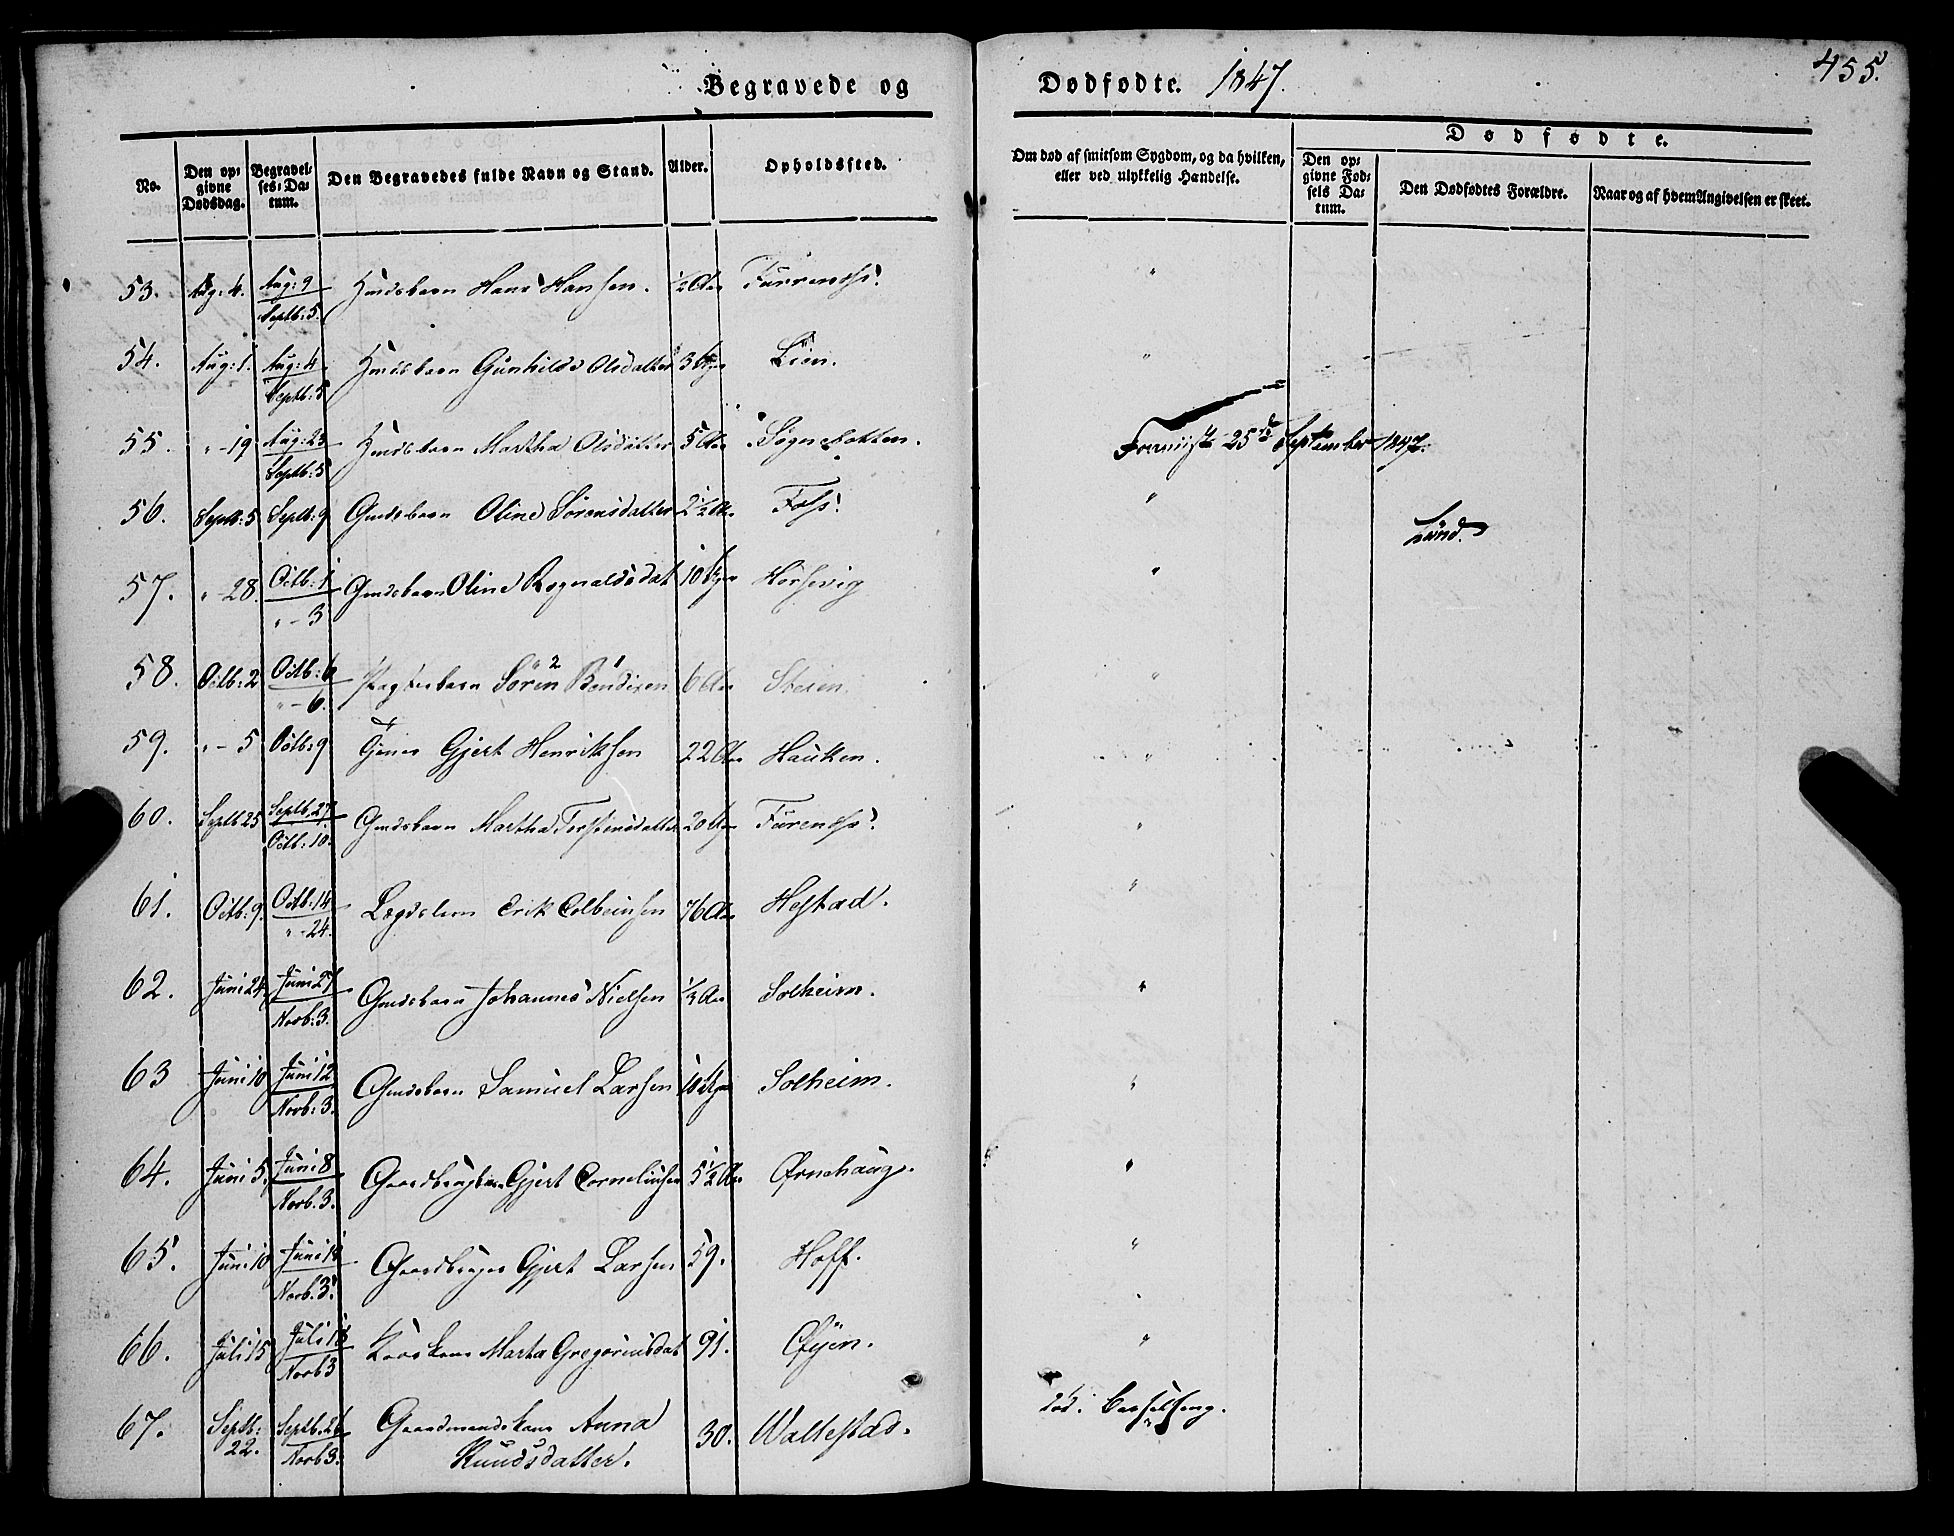 455.
Begravede og Dødfødte. 1847.
No.
Den opgivne Dødsdag.
Begravelses-Datum.
Den Begravedes fulde Navn og Stand.
Alder.
Opholdssted.
Om død af smitsom Sygdom, og da hvilken, eller ved ulykkelig Hændelse.
Dødfødte.
Den opgivne Fødsels Datum.
Den Dødfødtes Forældre.
Naar og af hvem Angivelsen er skeet.
53. Aug: 4. Aug: 9 Septb: 5. Hans Hansen. ½ Aar "
54. Aug: 1. Aug: 4 Septb: 5 Gunhilde Olsdatter 3 Lien. "
55. " - 19 Aug: 23 Septb: 5 Martha Olsdatter 5 Aar Sognebotten.
25de September 1847.
56. Septb: 5 Septb: 9 Oline Sørensdatter 2½ Aar Foss. "
Lund.
57. " - 28. Octb: 1 " - 3 Oline Rognaldsdat 10 Horsevig "
58. Octb: 2 Octb: 6 " - 6. Søren Bendixen 6 Aar Steien. "
59. " - 5 Octb: 9 Tjener Gjert Henriksen 22 Aar Hauken. "
60. Septb 25 Septb. 27 Octb: 10. Martha Torstensdatter 20 "
61. Octb: 9. Octb: 14 " - 24. Lægdslem Erik Colbeinsen 76 Aar Hestad. "
62. Juni 24. Juni 27 Novb: 3. Johannes Nielsen ⅓ Aar Solheim. "
63 Juni 10 Juni 12 Novb: 3. Samuel Larsen 10 Solheim. "
64. Juni 5. Juni 8 Novb. 3. Gjert Corneliusen 5½ Aar Ørnehaug. "
65. Juni 10 Novb. 3. Gaardbruger Gjert Larsen 59. Hoff. "
66. Juli 15 Juli 18 Novb 3 Marta Gregoriusdat 91. Øyen. "
67. Septb: 22. Septb. 26 Novb 3. Gaardmandskone Anna
Knudsdatter. 30. Waltestad. død i Barselseng.